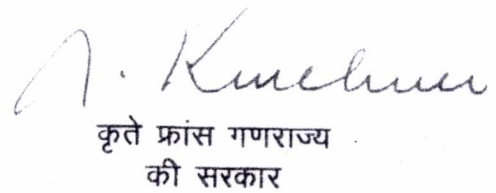 कृते फ्रांस गणराज्य
की सरकार